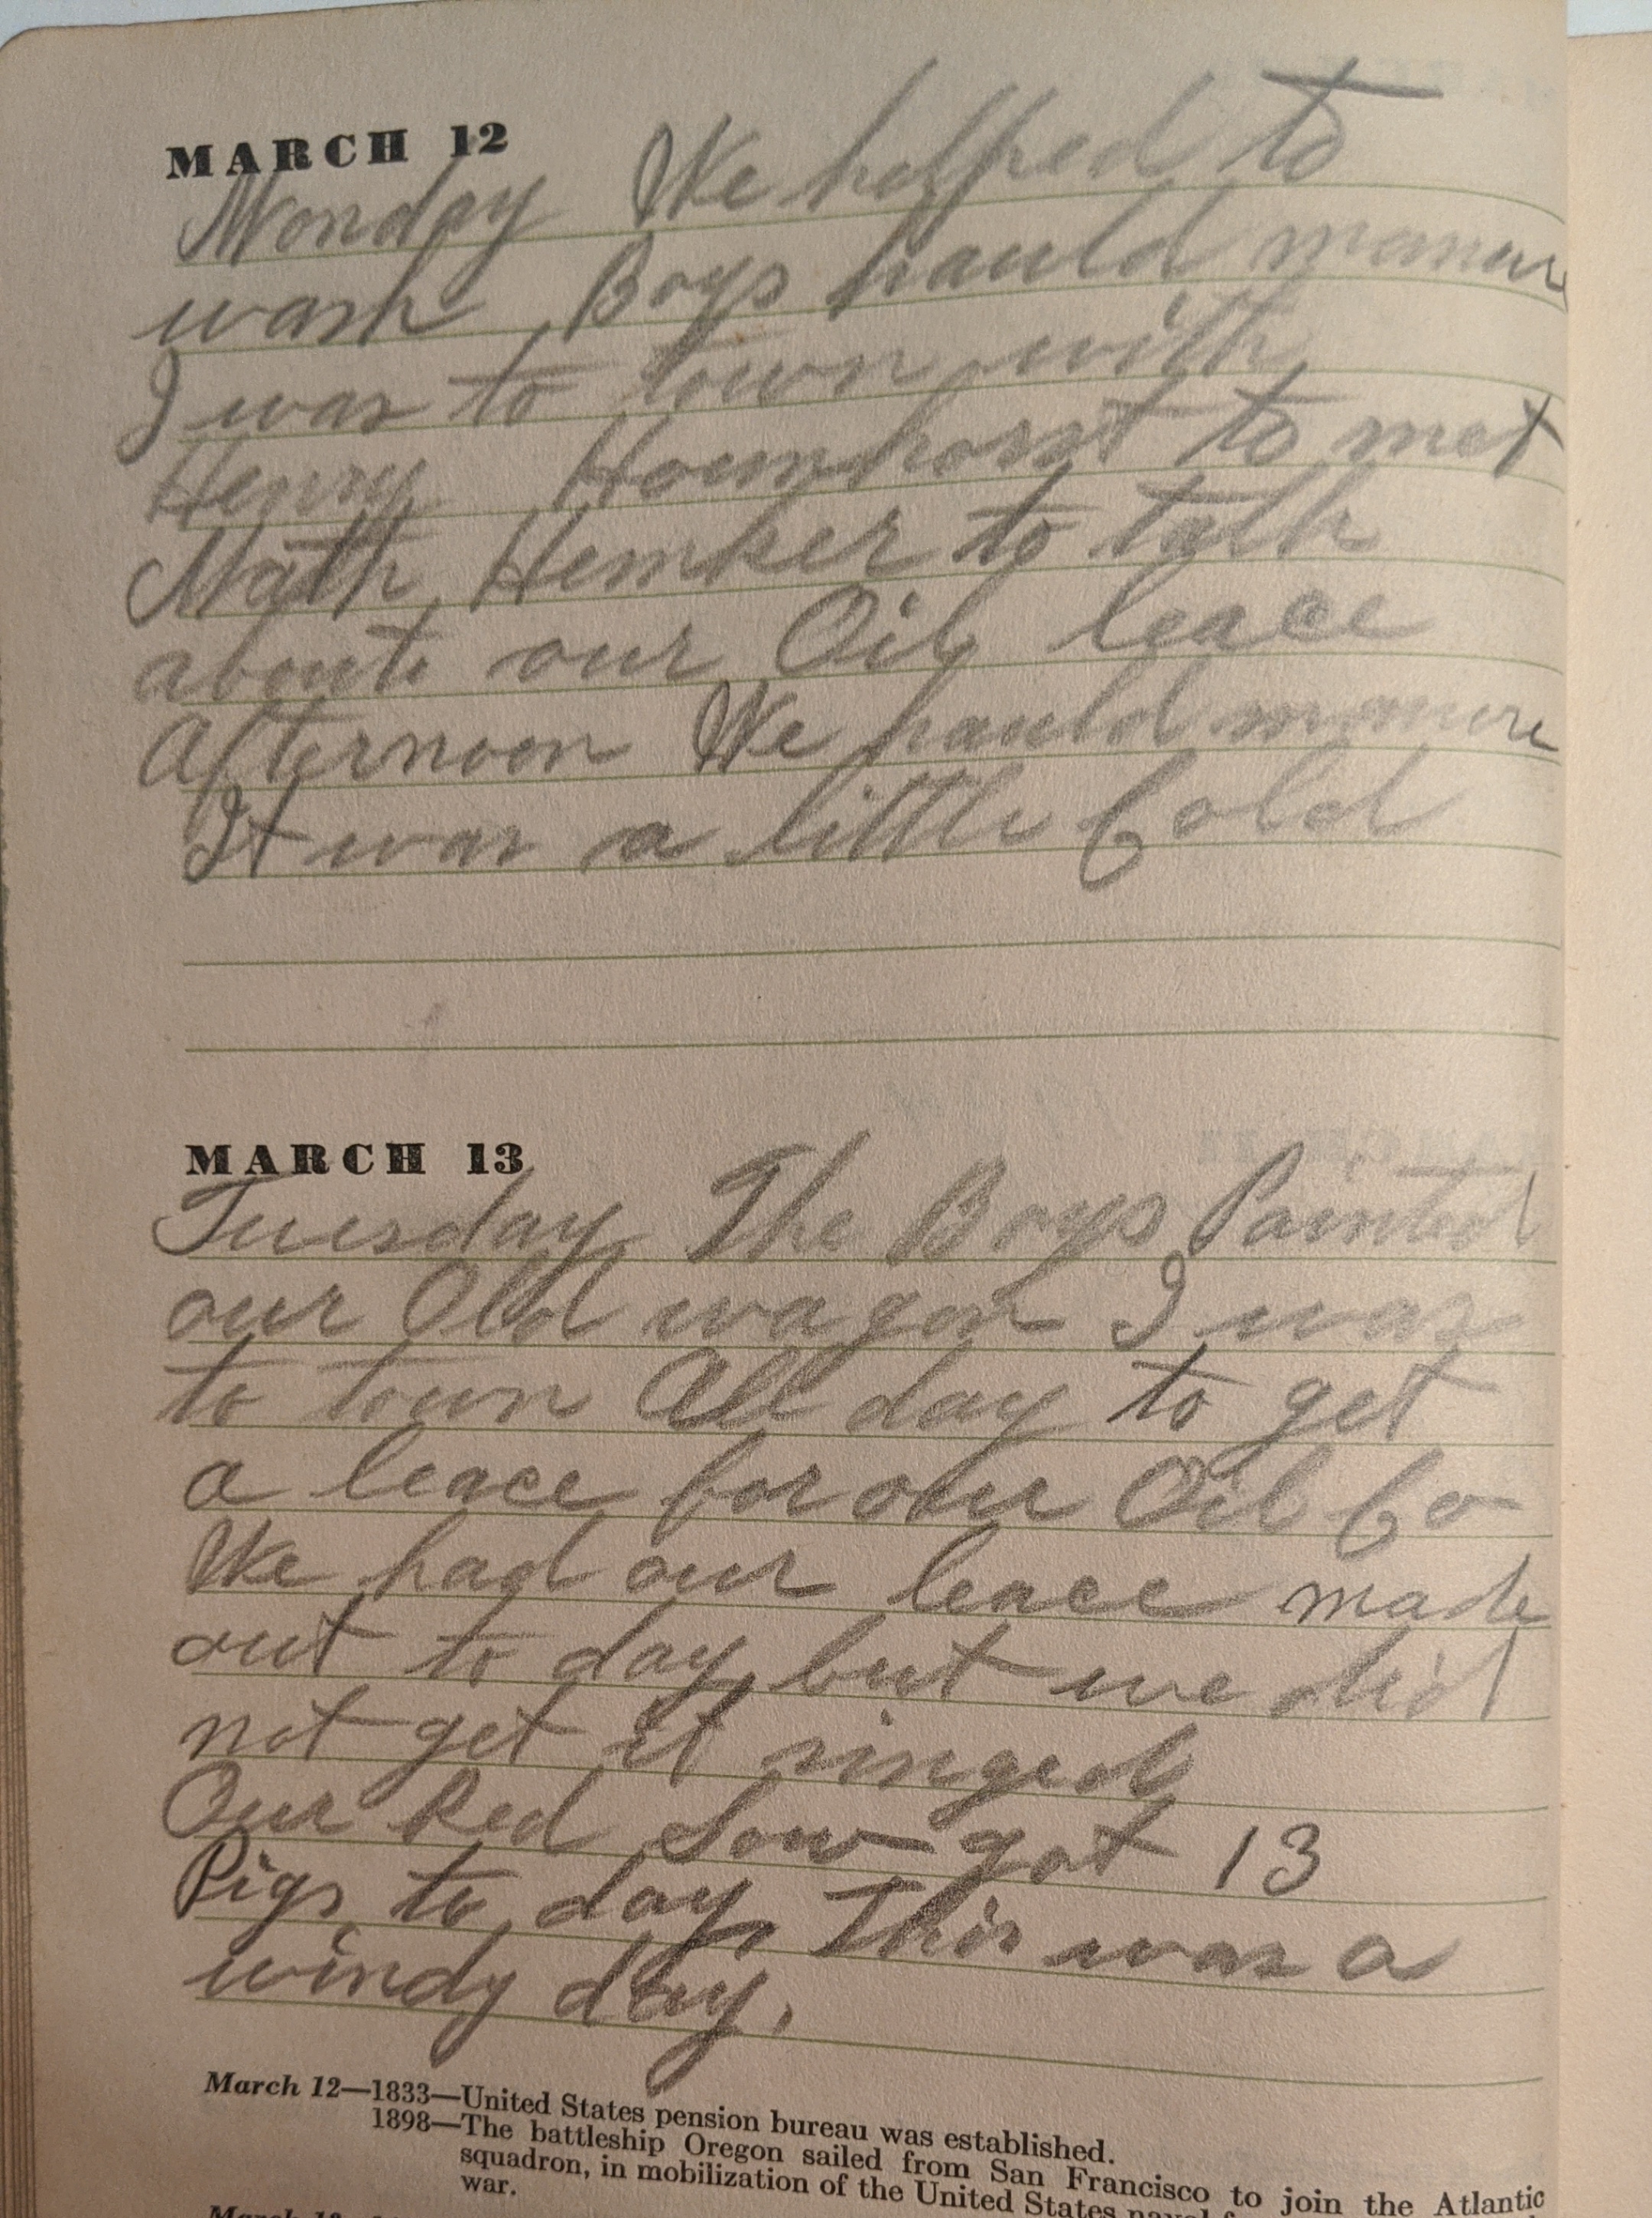 MARCH 12
Monday We helped to
wash Boys hauld manure
I was to town with
Henry Hoemhorst to met
Math Hemker to talk
about our Oil leace
Afternoon We hauld manure
It was a little Cold
MARCH 13
Tuesday The Boys Painted
our Old wagon I was
to town All day to get
a leace for our Oil Co
We had our leace made
out to day but we did
not get it singed
Our Red Sow got 13
Pigs to day, This was a
windy day.
March 12—1833—United States pension bureau was established.
1898—The battleship Oregon sailed from San Francisco to join the Atlantic
squadron, in mobilization of the United States naval
war.